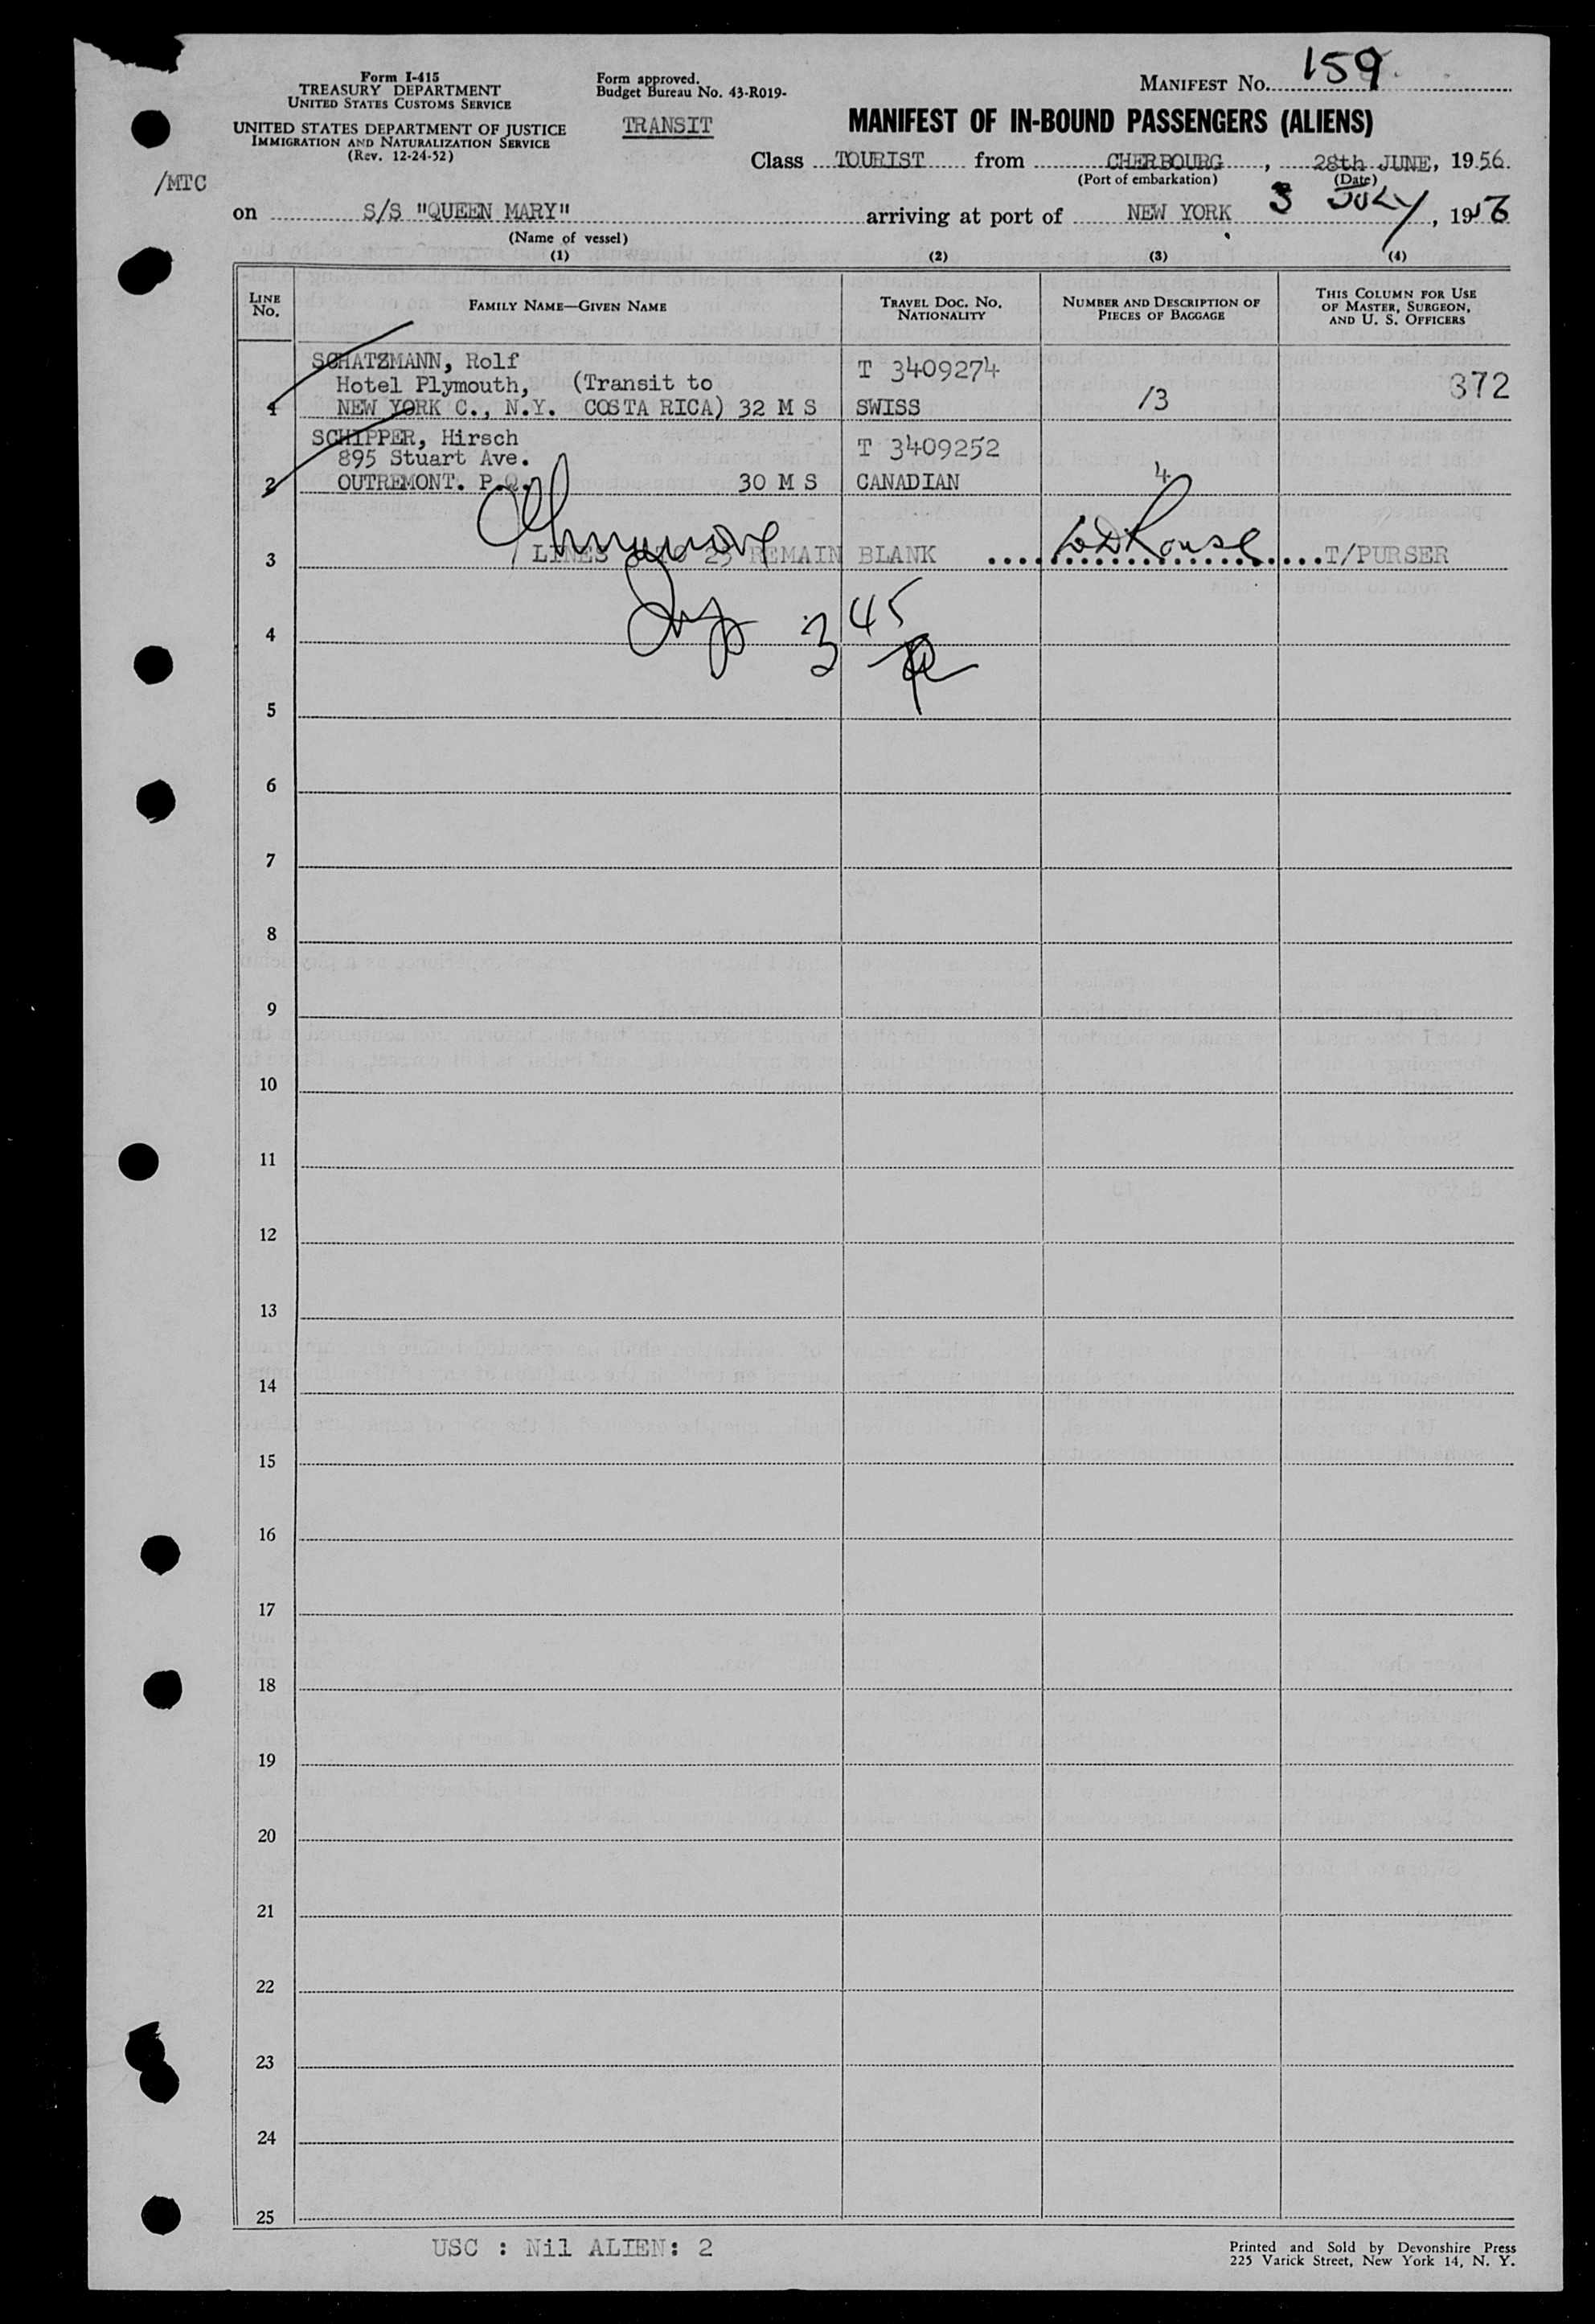 Form I-415
TREASURY DEPARTMENT
UNITED STATES CUSTOMS SERVICE
UNITED STATES DEPARTMENT OF JUSTICE
IMMIGRATION AND NATURALIZATION SERVICE
(Rev. 12-24-52)
Form approved.
Budget Bureau No. 43-R019-
TRANSIT
MANIFEST No. 159
MANIFEST OF IN-BOUND PASSENGERS (ALIENS)
Class TOURIST from CHERBOURG, 28th JUNE, 1956
(Port of embarkation) (Date)
/MTC
on S/S "QUEEN MARY" arriving at port of NEW YORK 3 JULY, 1956
(Name of vessel)
(1) (2) (3) (4)
LINE No. FAMILY NAME—GIVEN NAME TRAVEL DOC. No. NATIONALITY NUMBER AND DESCRIPTION OF PIECES OF BAGGAGE THIS COLUMN FOR USE OF MASTER, SURGEON, AND U. S. OFFICERS
SCHATZMANN, Rolf T 3409274
Hotel Plymouth, (Transit to 372
1 NEW YORK C., N.Y. COSTA RICA) 32 M S SWISS /3
SCHIPPER, Hirsch T 3409252
895 Stuart Ave.
2 OUTREMONT. P.Q. 30 M S CANADIAN 4
3 LINES 3 to 25 REMAIN BLANK T/PURSER
345
4
5
6
7
8
9
10
11
12
13
14
15
16
17
18
19
20
21
22
23
24
25
USC : Nil ALIEN: 2
Printed and Sold by Devonshire Press
225 Varick Street, New York 14, N. Y.